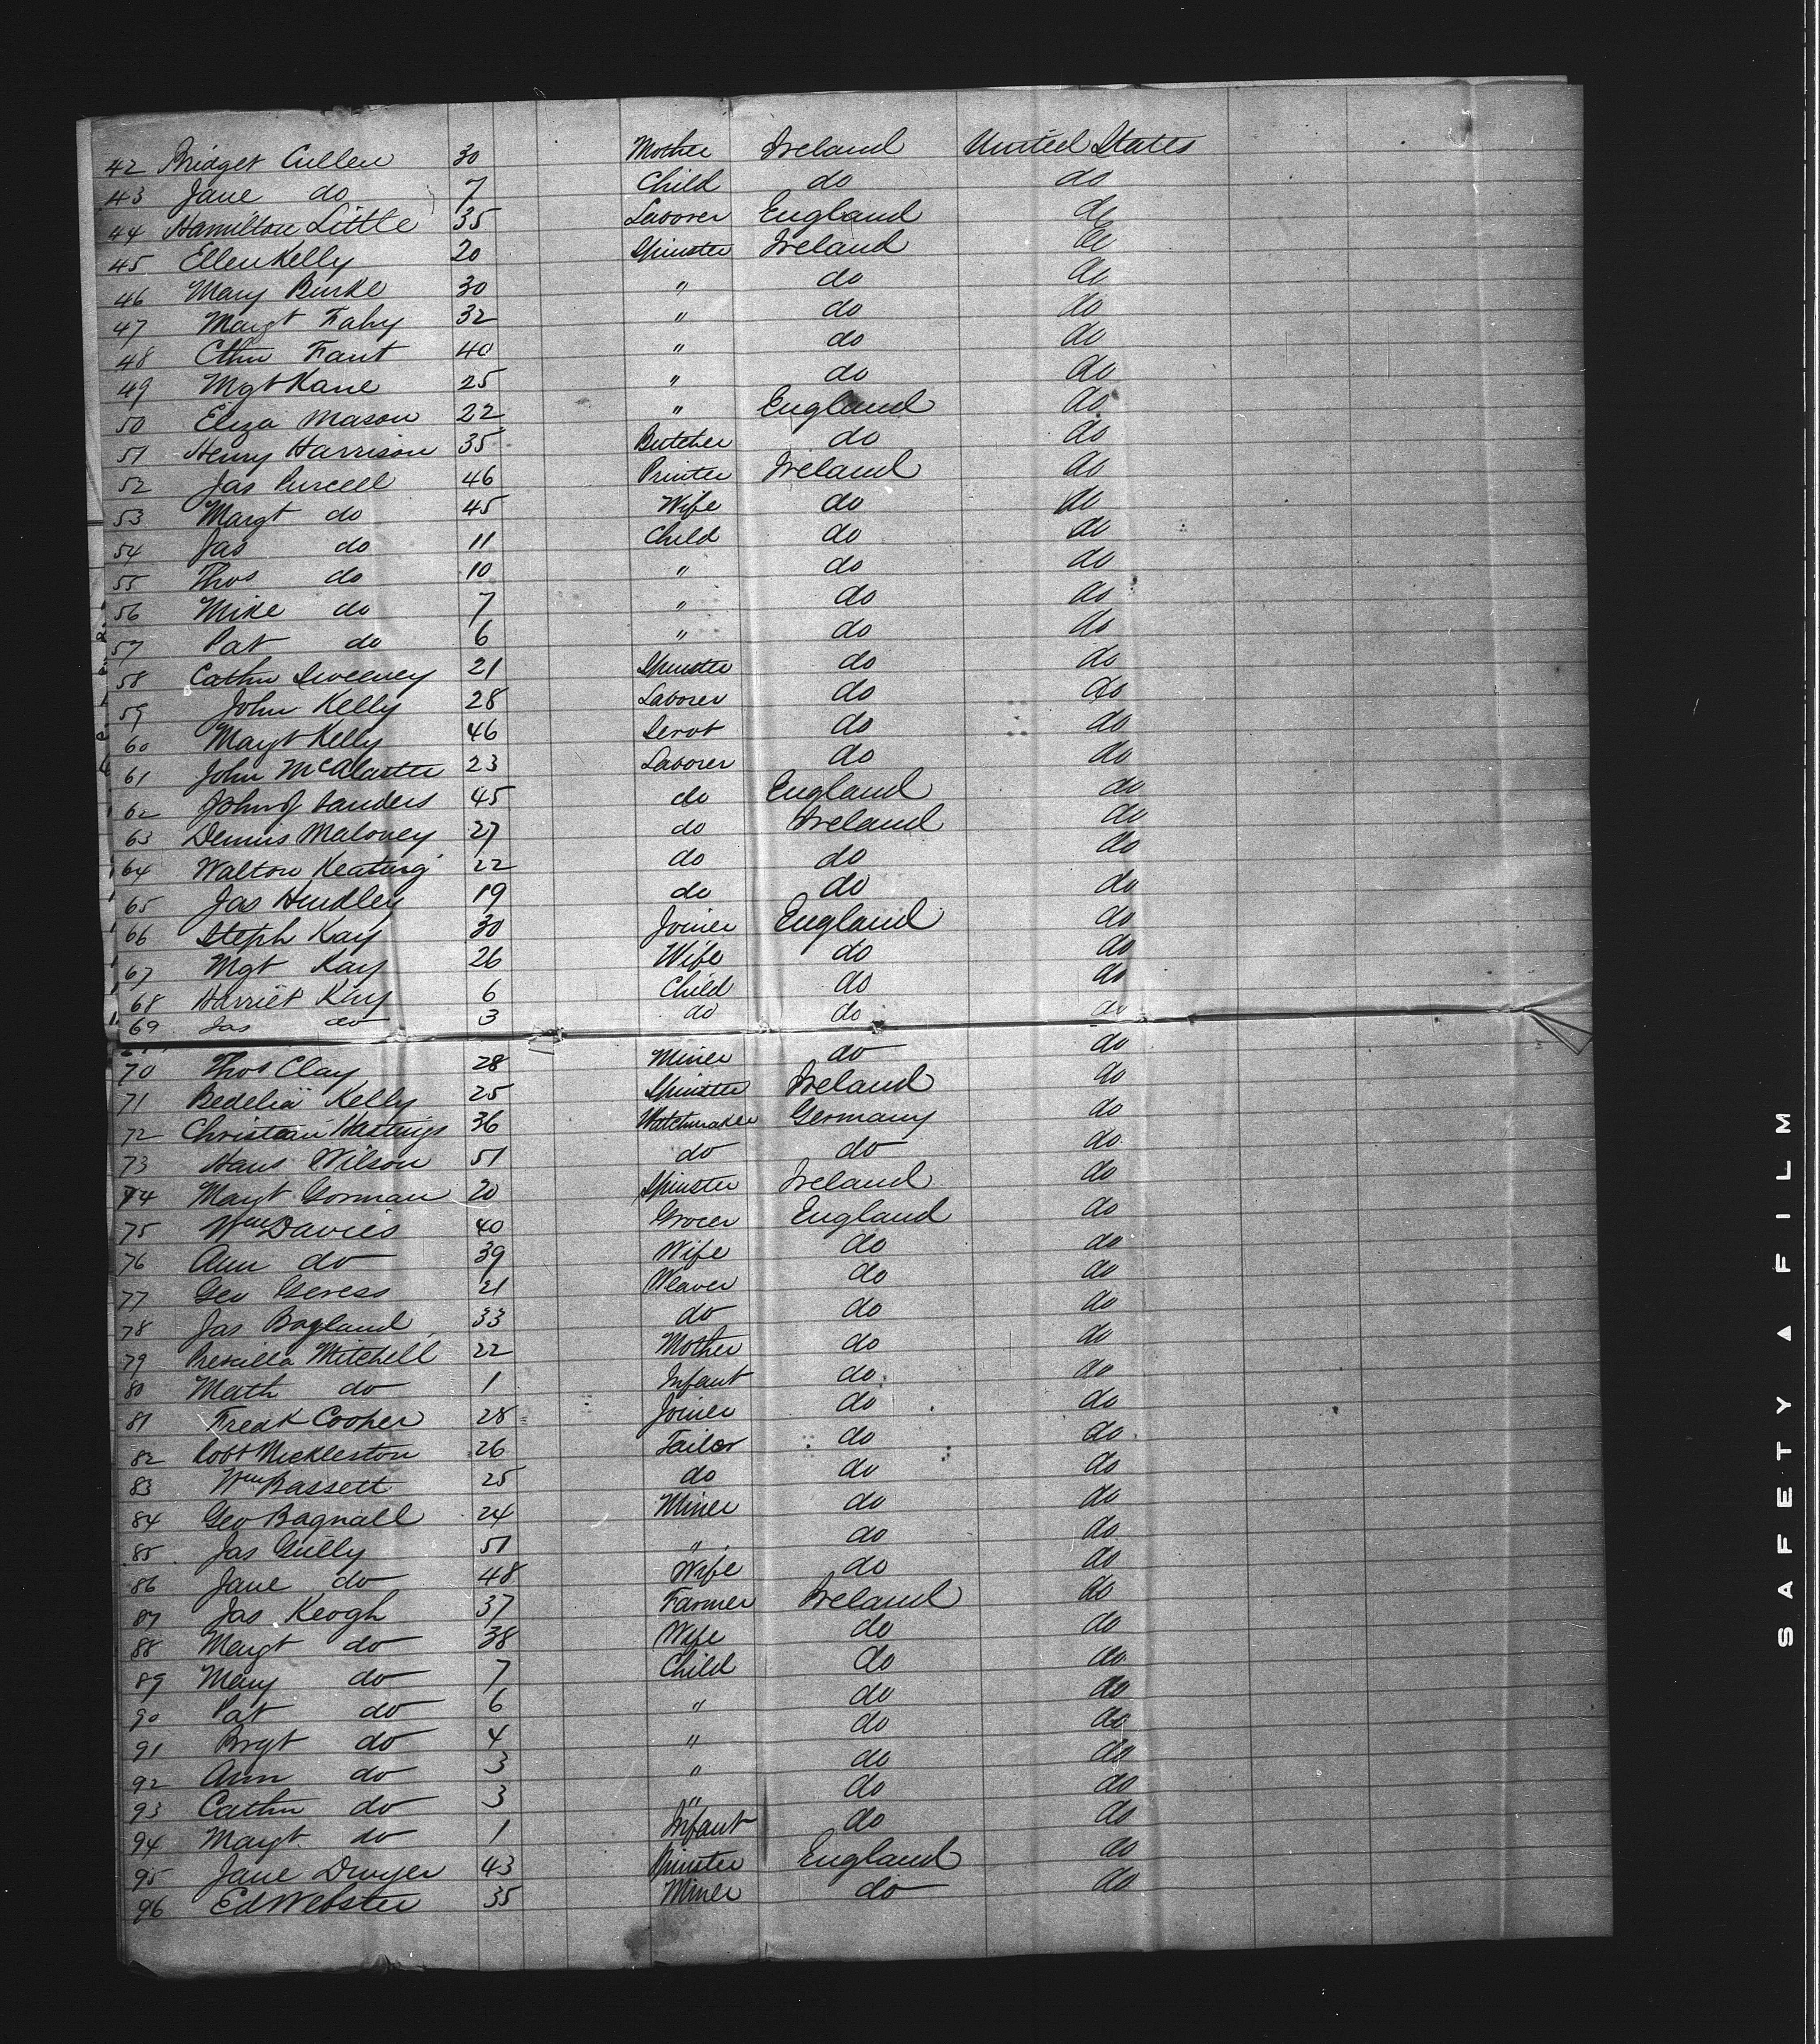 42 Bridget Cullen 30 Mother Ireland United States
43 Jane do 7 Child do do
44 Hamilton Little 35 Laborer England do
45 Ellen Kelly 20 Spinster Ireland do
46 Mary Burke 30 " do do
47 Margt Fahy 32 " do do
48 Cthn Fant 40 " do do
49 Mgt Kane 25 " do do
50 Eliza Mason 22 " England do
51 Henry Harrison 35 Butcher do do
52 Jas Purcell 46 Printer Ireland do
53 Margt do 45 Wife do do
54 Jas do 11 Child do do
55 Thos do 10 " do do
56 Mike do 7 " do do
57 Pat do 6 " do do
58 Cathn Sweeney 21 Spinster do do
59 John Kelly 28 Laborer do do
60 Margt Kelly 46 Servt do do
61 John McAlaster 23 Laborer do do
62 John J Sanders 45 do England do
63 Dennis Maloney 27 do Ireland do
64 Walton Keating 22 do do do
65 Jas Hindley 19 do do do
66 Steph Kay 30 Joiner England do
67 Mgt Kay 26 Wife do do
68 Harriet Kay 6 Child do do
69 Jas do 3 do do do
70 Thos Clay 28 Miner do do
71 Bedelia Kelly 25 Spinster Ireland do
72 Christian Hastings 36 Watchmaker Germany do
73 Hans Wilson 51 do do do
74 Margt Gorman 20 Spinster Ireland do
75 Wm Davies 40 Grocer England do
76 Ann do 39 Wife do do
77 Geo Geress 21 Weaver do do
78 Jas Bogland 33 do do do
79 Prescilla Mitchell 22 Mother do do
80 Math do 1 Infant do do
81 Fredk Cooper 28 Joiner do do
82 Robt Mickleston 26 Tailor do do
83 Wm Bassett 25 do do do
84 Geo Bagnall 24 Miner do do
85 Jas Gully 51 " do do
86 Jane do 48 Wife do do
87 Jas Keogh 37 Farmer Ireland do
88 Margt do 38 Wife do do
89 Mary do 7 Child do do
90 Pat do 6 " do do
91 Brgt do 4 " do do
92 Ann do 3 " do do
93 Cathn do 3 " do do
94 Margt do 1 Infant do do
95 Jane Dwyer 43 Spinster England do
96 Ed Webster 35 Miner do do
SAFETY ▲ FILM